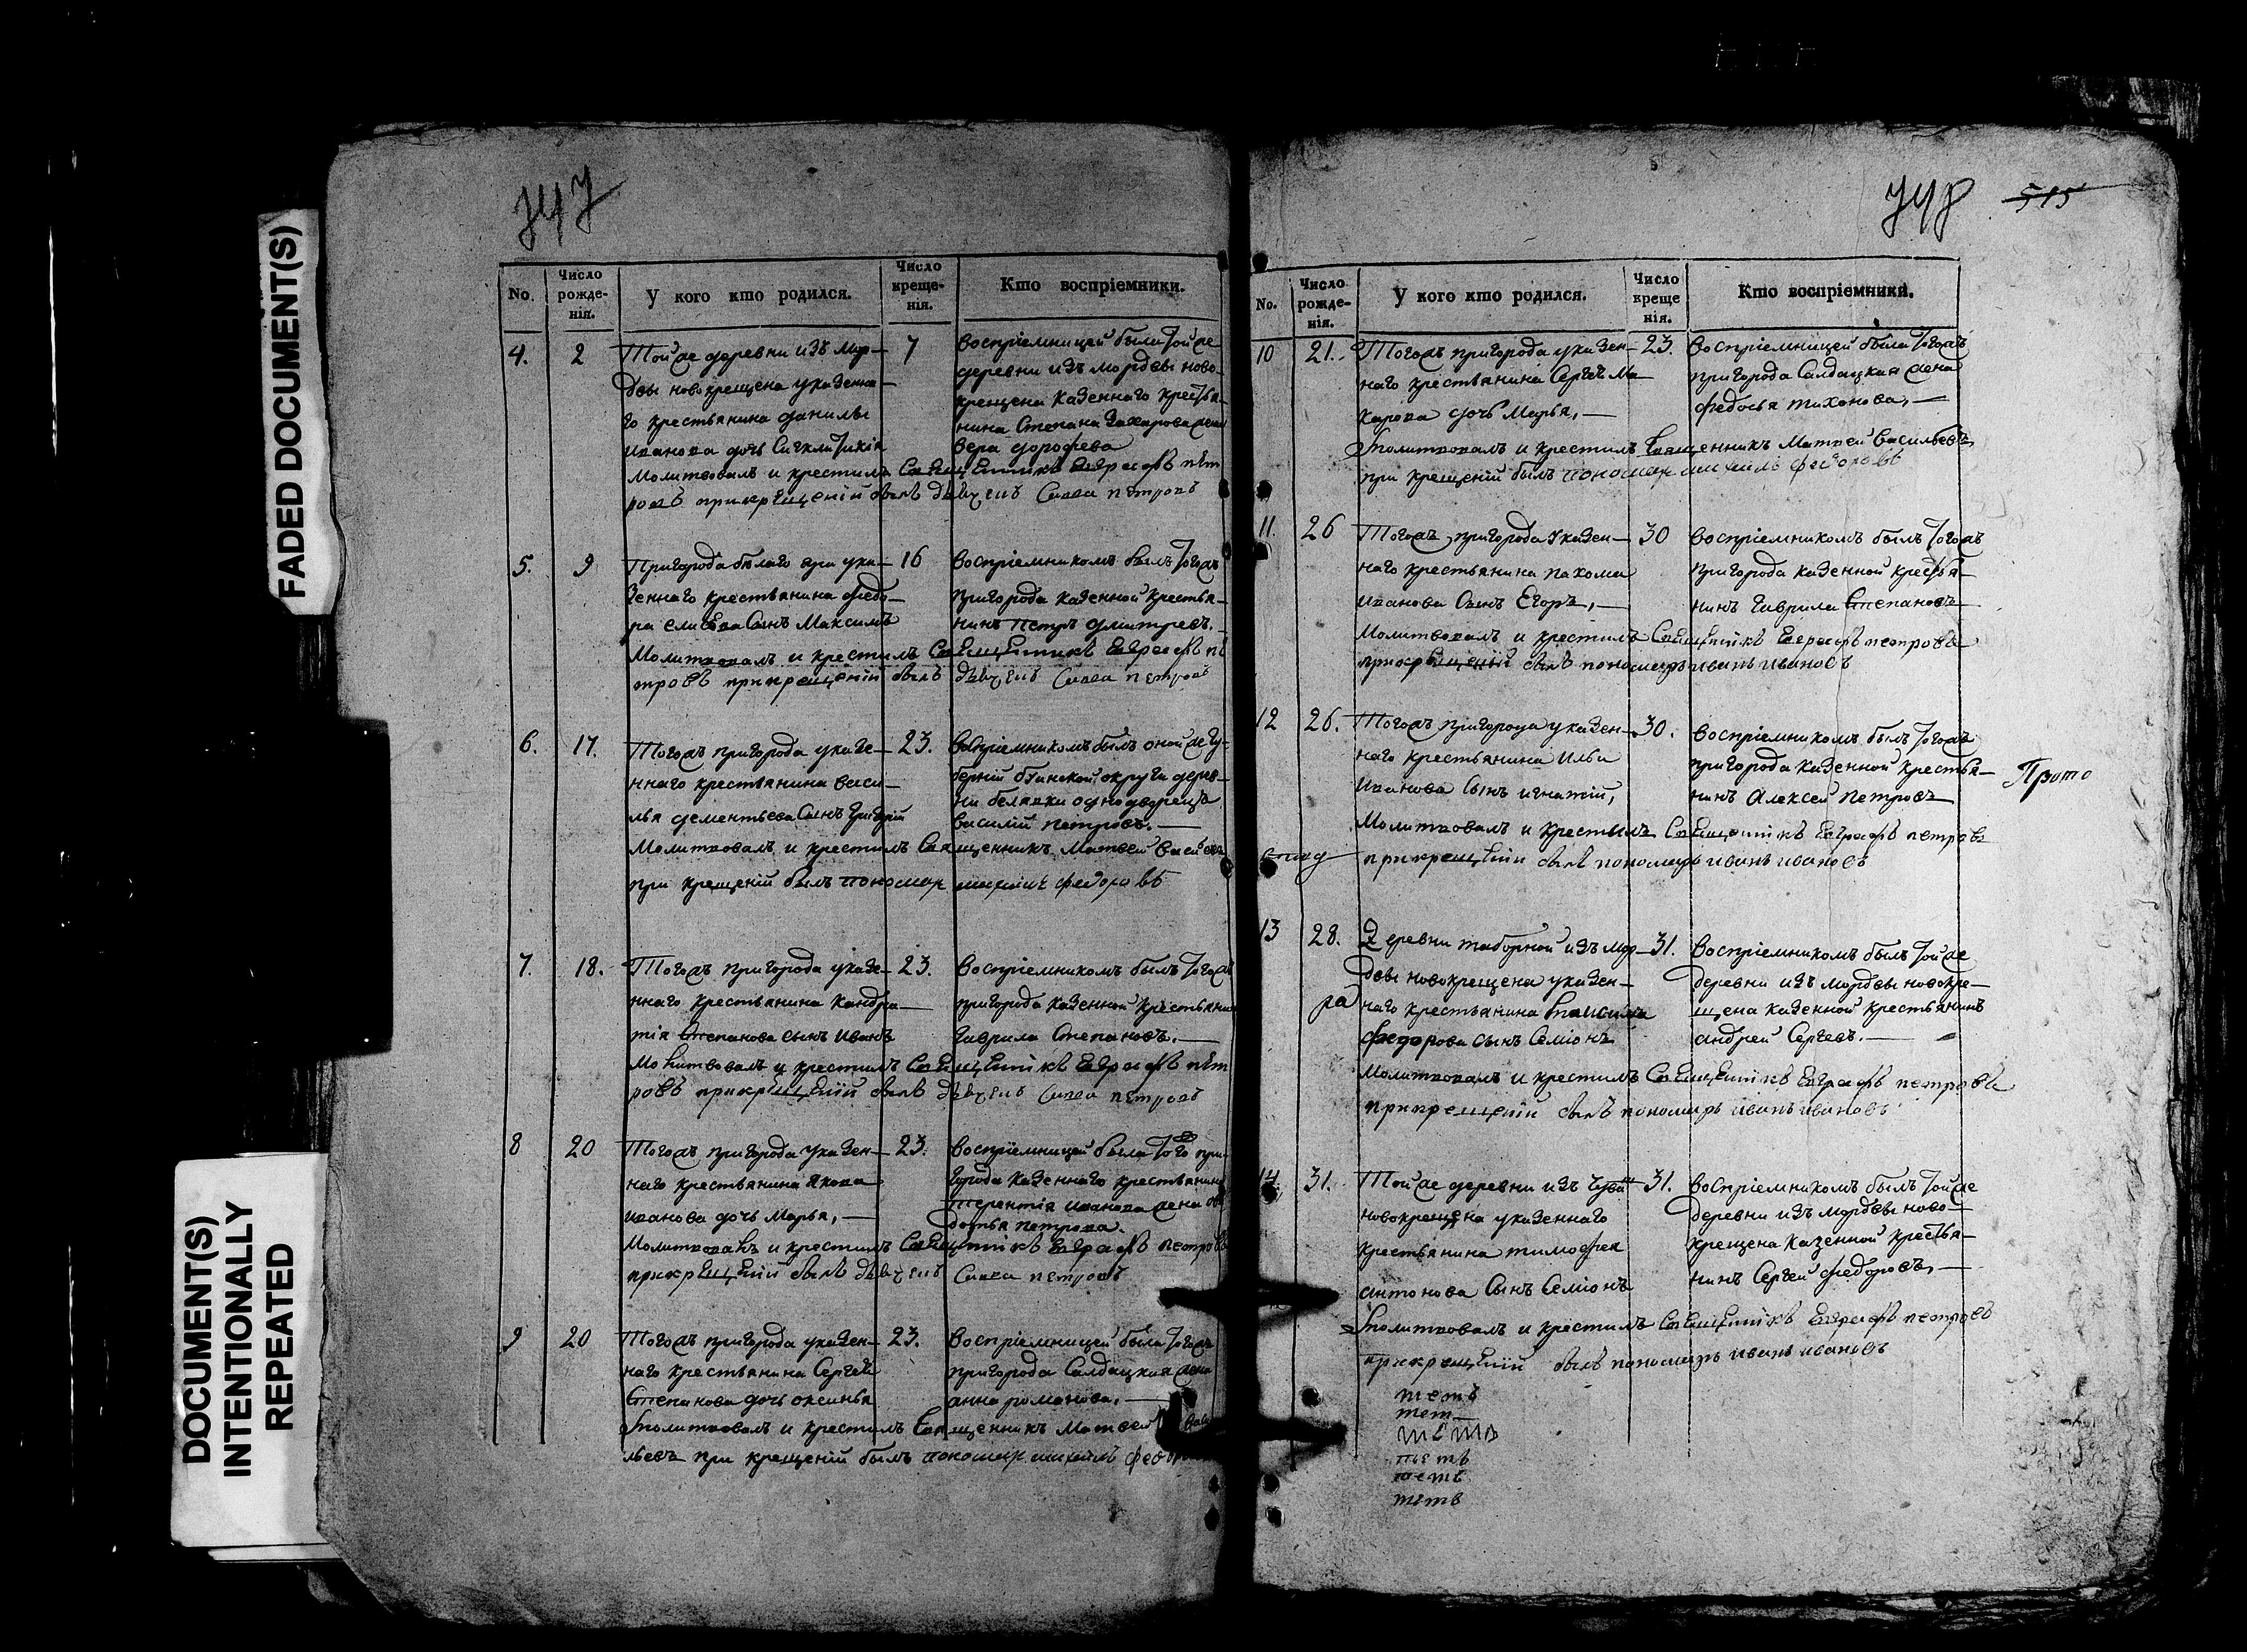 FADED DOCUMENT(S)
DOCUMENT(S)
INTENTIONALLY
REPEATED
747
No.
Число рожде-нія.
У кого кто родился.
Число креще-нія.
Кто воспріемники.
4.
2
Той же деревни изъ Мор-
двы новокрещена указенна-
го крестьянина данилы
иванова дочь Сигклитикія
7
воспріемницей была той же
деревни изъ мордвы ново-
крещена Казеннаго крестья-
нина Степана Захарова жена
вера дорофеева
Молитвовалъ и крестилъ Священникъ Евграфъ пет
ровъ прикрещеніи былъ дьячекъ Савва петровъ
5.
9
Пригорода белаго яра ука-
зеннаго крестьянина федо-
ра елисева Сынъ Максимъ
16
воспріемникомъ былъ тогожъ
пригорода казенной крестья-
нинъ Петръ дмитревъ.
Молитвовалъ и крестилъ Священникъ Евграфъ пе
тровъ прикрещеніи былъ дьячекъ Савва петровъ
6.
17.
Тогожъ пригорода указе-
ннаго крестьянина васи-
лья дементьева Сынъ Григорій
23.
воспріемникомъ былъ оной же гу-
берніи буинской округи дерев-
ни белявки однодворецъ
василій петровъ.
Молитвовалъ и крестилъ Священникъ Матвей васильевъ
при крещеніи былъ пономарь михаилъ федоровъ
7.
18.
Тогожъ пригорода указе-
ннаго крестьянина Кандра-
тія Степанова сынъ иванъ
23.
воспріемникомъ былъ тогожъ
пригорода казенной крестьянинъ
Гаврила Степановъ.
Молитвовалъ и крестилъ Священникъ Евграфъ пет
ровъ прикрещеніи былъ дьячекъ Савва петровъ
8
20
Тогожъ пригорода указен-
наго крестьянина якова
иванова дочь Марья,
23.
воспріемницей была того при-
города казеннаго крестьянина
терентія иванова жена
дотья петрова.
Молитвовалъ и крестилъ Священникъ Евграфъ петровъ
прикрещеніи былъ дьячекъ Савва петровъ
9
20
Тогожъ пригорода указен-
наго крестьянина Сергея
Степанова дочь оксинья
23.
воспріемницей была тогожъ
пригорода Салдацкая жена
анна романова.
Молитвовалъ и крестилъ Священникъ Матвей васи
льевъ при крещеніи былъ пономарь михаилъ федоровъ
748
515
No.
Число рожде-нія.
У кого кто родился.
Число креще нія.
Кто воспріемники.
10
21.
Тогожъ пригорода указен-
наго крестьянина Сергея Ма-
карова дочь Марья,
23.
воспріемницей была тогожъ
пригорода Салдацкая жена
федосья тихонова,
Молитвовалъ и крестилъ Священникъ Матвей васильевъ
при крещеніи былъ пономарь михаилъ федоровъ
11.
26
Тогожъ пригорода указен-
наго крестьянина пахома
иванова Сынъ Егоръ,
30
воспріемникомъ былъ тогожъ
пригорода казенной крестья-
нинъ Гаврила Степановъ
Молитвовалъ и крестилъ Священникъ Евграфъ петровъ
прикрещеніи былъ пономарь иванъ ивановъ
12
26.
Тогожъ пригорода указен-
наго крестьянина Ильи
Иванова Сынъ игнатій,
30.
воспріемникомъ былъ тогожъ
пригорода казенной крестья-
нинъ Алексей петровъ
Прото
Молитвовалъ и крестилъ Священникъ Евграфъ петровъ
прикрещеніи былъ пономарь иванъ ивановъ
13
28.
Деревни таборной изъ мор-
двы новокрещена указен-
наго крестьянина
федорова сынъ Семіонъ
31.
воспріемникомъ былъ той же
деревни изъ мордвы новокре-
щена казенной крестьянинъ
андрей Сергеевъ.
ра
Молитвовалъ и крестилъ Священникъ Евграфъ петровъ
прикрещеніи былъ пономарь иванъ ивановъ
14.
31.
Той же деревни изъ Чуваш
новокрещена указеннаго
крестьянина тимофея
антонова Сынъ Семіонъ
31.
воспріемникомъ былъ той же
деревни изъ мордвы ново-
крещена казенной крестья-
нинъ Сергей федоровъ,
Молитвовалъ и крестилъ Священникъ Евграфъ петровъ
прикрещеніи былъ пономарь иванъ ивановъ